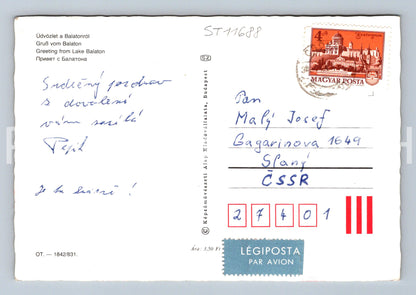 Üdvözlet a Balatonról
Gruß vom Balaton
Greeting from Lake Balaton
Привет с Балатона
ST11688
4Ft
Esztergom
MAGYAR POSTA
Srdečný pozdrav
z dovolené
vám zasílá
Pepík
Je tu krásně!
Pan
Malý Josef
Gagarinova 1649
Slaný
ČSSR
27401
Képzőművészeti Alap Kiadóvállalata, Budapest
Ára: 3,50 Ft
LÉGIPOSTA
PAR AVION
OT. — 1842/831.